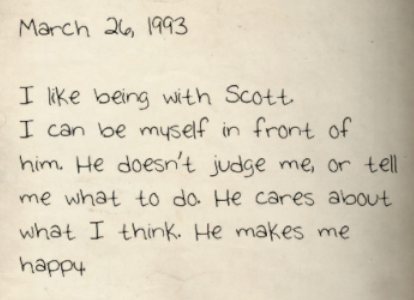 March 26, 1993
I like being with Scott.
I can be myself in front of
him. He doesn't judge me, or tell
me what to do. He cares about
what I think. He makes me
happy